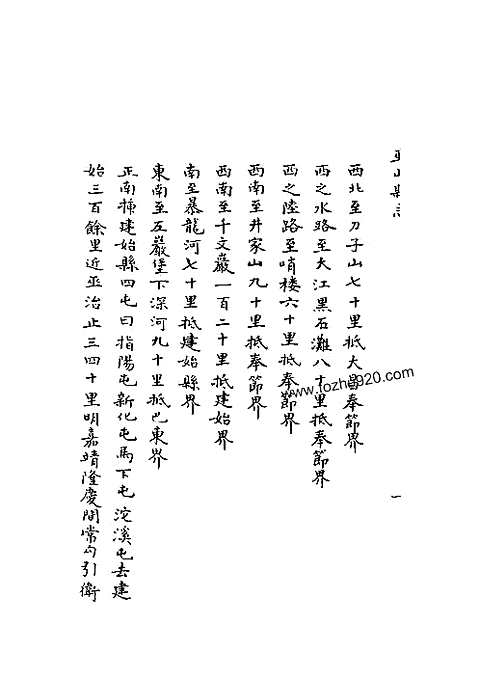 巫山縣志
西北至刀子山七十里抵大昌奉節界
西之水路至大江黑石灘八十里抵奉節界
西之陸路至哨樓六十里抵奉節界
西南至井家山九十里抵奉節界
西南至千文巖一百二十里抵建始界
南至暴龍河七十里抵建始縣界
東南至瓦巖堡下深河九十里抵巴東界
正南插建始縣四屯曰指陽屯新化屯馬下屯淀溪屯去建
始三百餘里近巫治止三四十里明嘉靖隆慶間常勾引衛
一
www.lozhe920.com